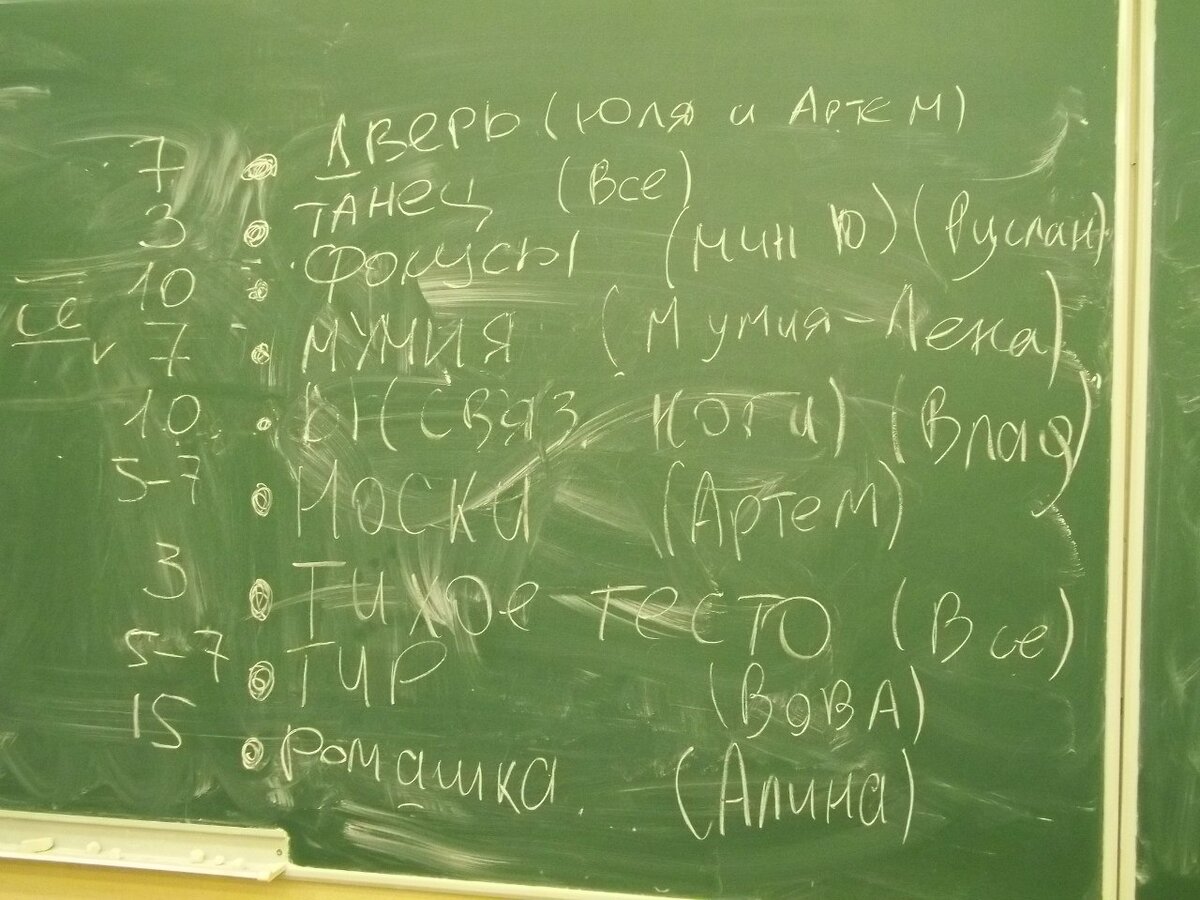 7 Дверь (Юля и Артем)
3 Танец (Все)
10 Фокусы (мин Ю) (Руслан)
се 7 Мумия (Мумия-Лена)
10 Ы (связ. ноги) (Влад)
5-7 Носки (Артем)
3 Тихое тесто (Все)
5-7 Тир (Вова)
15 Ромашка. (Алина)